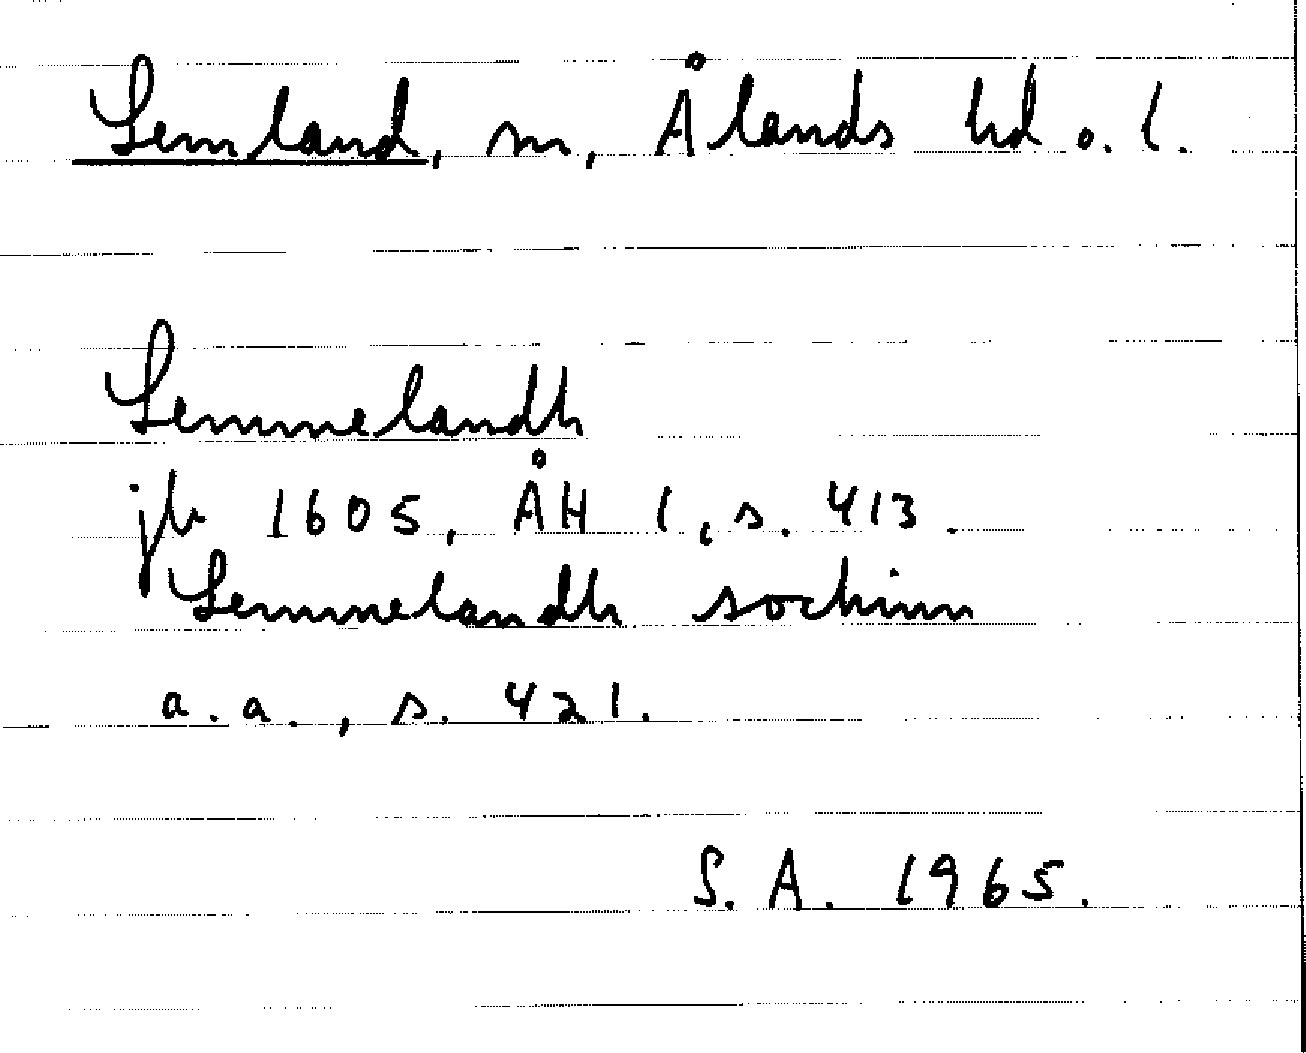 Lemland, sn, Ålands hd o. l.
Lemmelandh
jb 1605, ÅH 1, s. 413.
Lemmelandh sochinn
a.a., s. 421.
S.A. 1965.